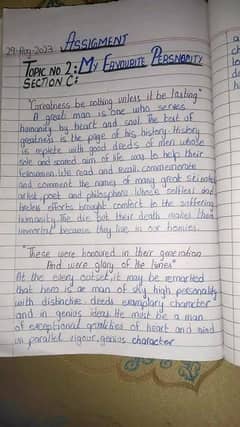 29-Aug-2023 ASSIGMENT
TOPIC NO. 2: MY FAVOURITE PERSNALITY
SECTION C:
"Greatness be nothing unless it be lasting"
A great man is one who serves
humanity by heart and soul. The best of
greatness is the page of his history. History
is replete with good deeds of men whose
sole and sacred aim of life was to help their
fellowmen. We read and recall, commemorate
and comment the names of many great scientist
artist, poet and philosophers whose selfless and
tireless efforts brought comfort to the suffering
humanity. The die but their death makes them
immortal because they live in our
"These were honoured in their generation
And were glory of the times"
At the very outset, it may be remarked
that hero is a man of sky high personality
with distinctive deeds exemplary character
and in genius ideas. He must be a man
of exceptional qualities of heart and mind
un parallel vigour, genius character